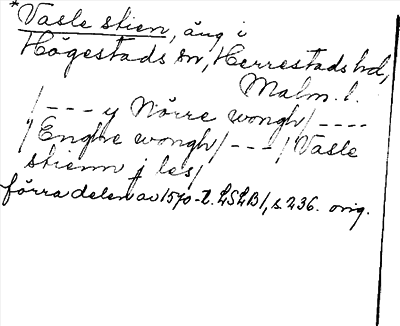 *Vasle stien, äng i
Högestads sn, Herrestads hd,
Malm. l.
/--- y Nörre wongh/----
y Enghe wongh/---/Vasle
stienn j les/
förra delen av 1570-t. LSLB/, s. 236. orig.